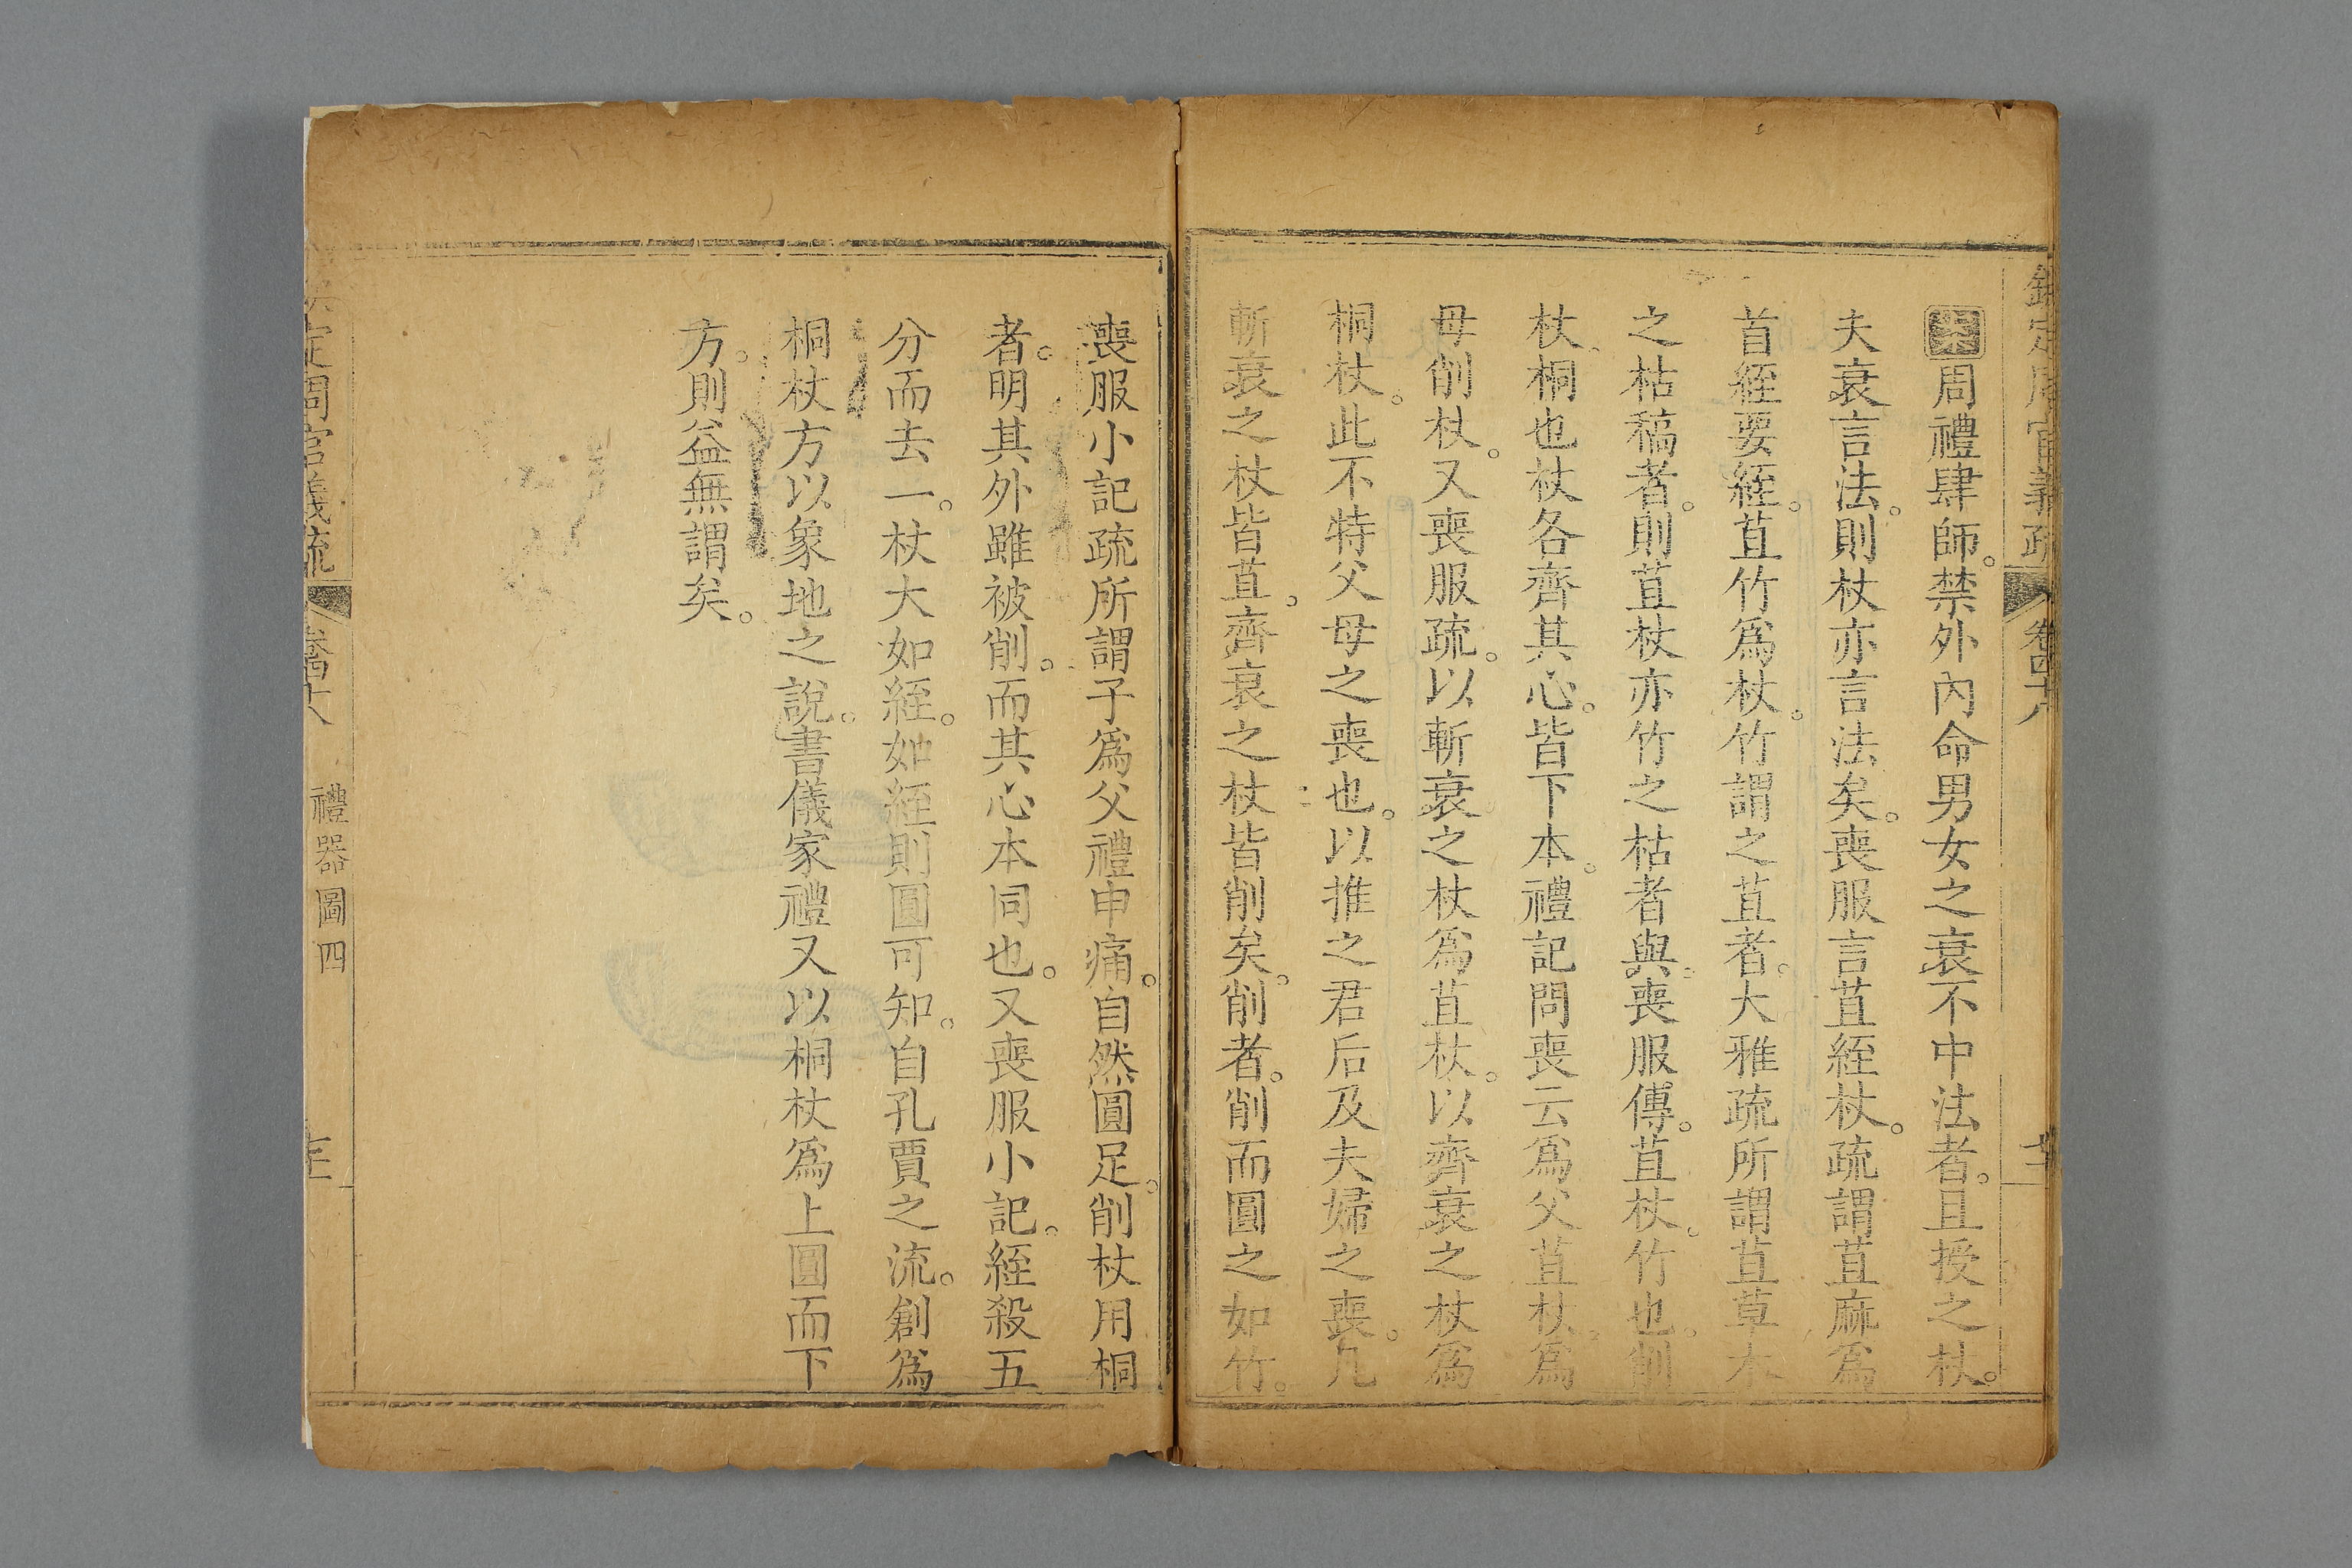 欽定周官義疏 卷四十八
案周禮肆師。禁外內命男女之衰不中法者。且授之杖。
夫衰言法。則杖亦言法矣。喪服言苴絰杖。疏謂苴麻爲
首絰要絰。苴竹爲杖。竹謂之苴者。大雅疏所謂苴草木
之枯稿者。則苴杖亦竹之枯者與。喪服傳。苴杖。竹也。削
杖。桐也杖各齊其心。皆下本。禮記問喪云爲父苴杖。爲
母削杖。又喪服疏。以斬衰之杖爲苴杖。以齊衰之杖爲
桐杖。此不特父母之喪也。以推之君后及夫婦之喪。凡
斬衰之杖皆苴。齊衰之杖皆削矣。削者。削而圓之如竹。
喪服小記疏所謂子爲父禮申痛。自然圓足。削杖用桐
者。明其外雖被削。而其心本同也。又喪服小記。絰殺五
分而去一。杖大如絰。如絰則圓可知。自孔賈之流。創爲
桐杖方以象地之說。書儀家禮又以桐杖爲上圓而下
方。則益無謂矣。
定周官義疏 卷四十八 禮器圖四